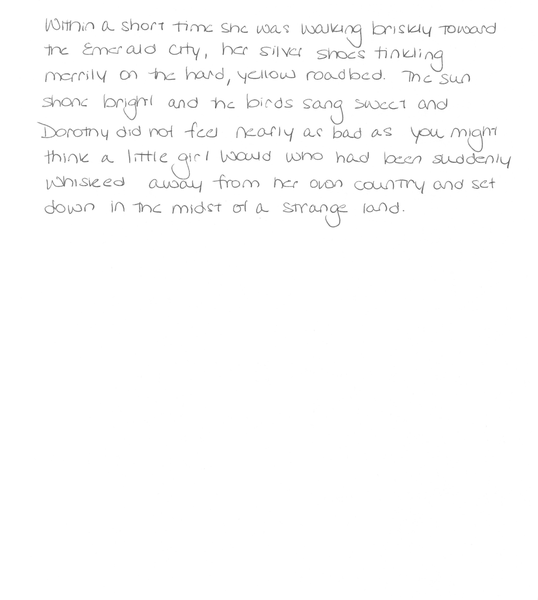 Within a short time she was walking briskly toward
the Emerald City, her silver shoes tinkling
merrily on the hard, yellow roadbed. The sun
shone bright and the birds sang sweet and
Dorothy did not feel nearly as bad as you might
think a little girl would who had been suddenly
whisked away from her own country and set
down in the midst of a strange land.